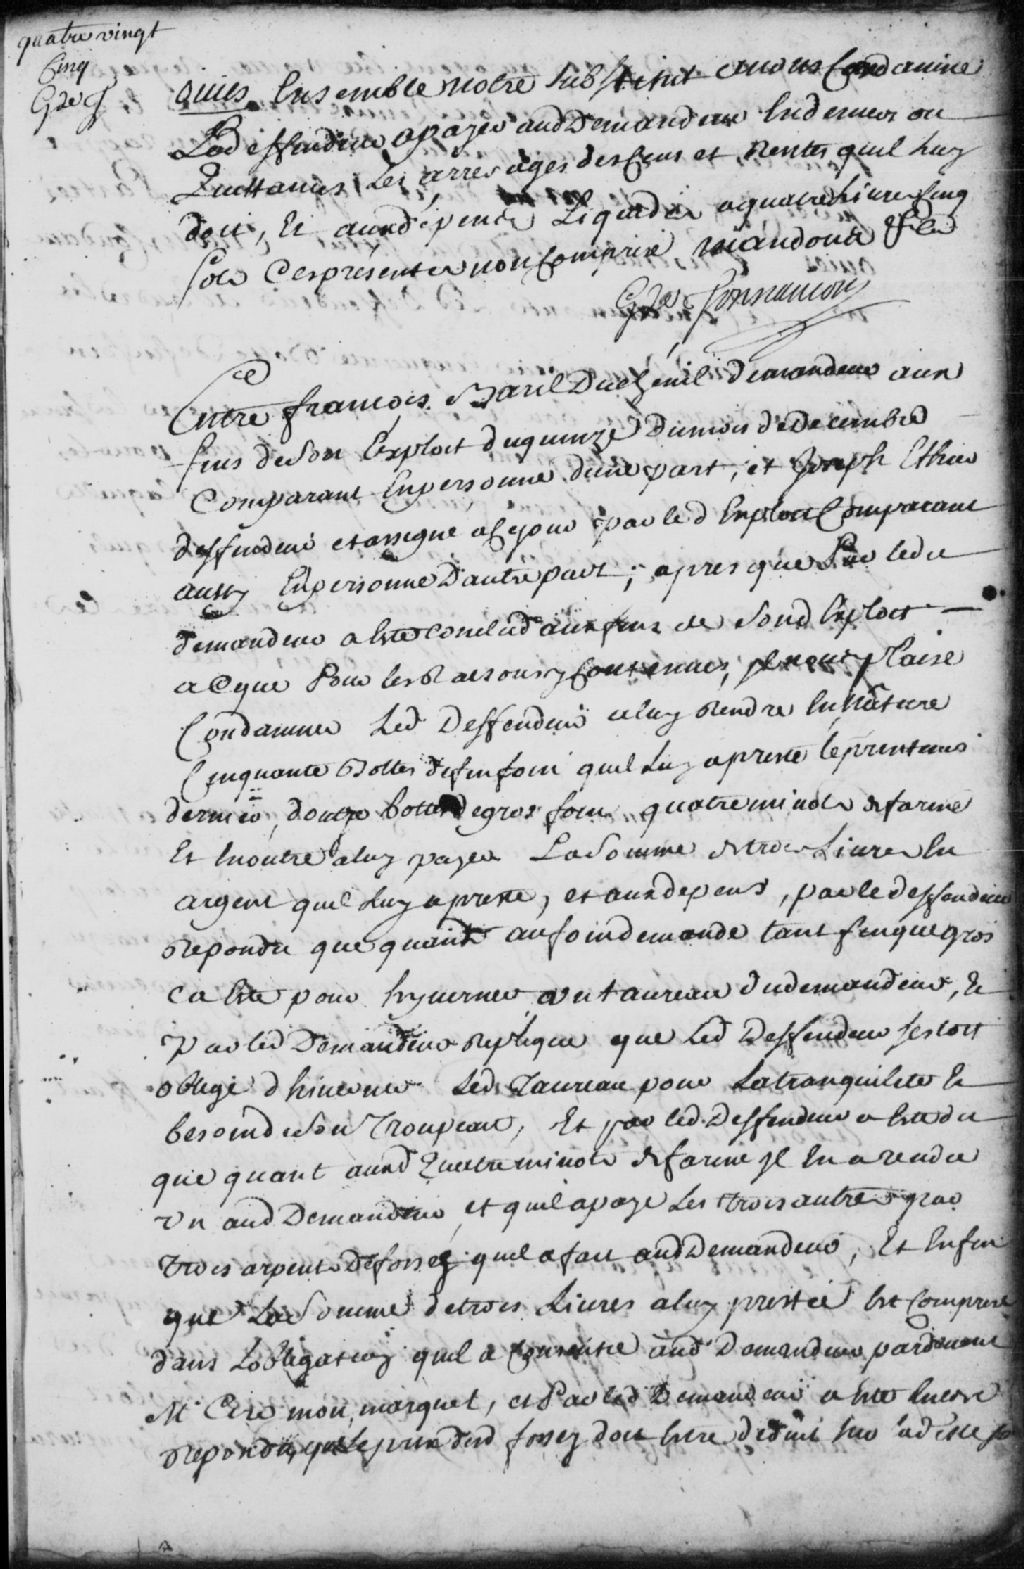 quatre vingt
Cinq
ouies Ensemble nostre Substitut avons Condamné
Led deffendeur a payer aud Demandeur En deniers ou
Quittances Les arrerages des Cens et Rentes quil luy
doit, Et aux dépens Liquidés a quatre Livres Cinq
sols Ces presentes non Comprises mandons &c

Entre françois Baril Ducheni demandeur aux
fins de Son Exploit du quinze du mois de Decembre
Comparant En personne d'une part, et Joseph Ethier
deffendeur et assigné a Ce jour par led Exploit Comparant
aussy En personne D'autre part; apres que Par ledit
demandeur a Eté Conclud aux fins de Sond Exploit
a Ce que Pour les Raisons y Contenues, Il nous plaise
Condamner Led Deffendeur a luy Rendre En Nature
Cinquante Bottes de fin foin quil Luy a presté le printems
dernier, douze bottes de gros foin quatre minots de farine
Et En outre a luy payer La Somme de trois Livres En
argent quil luy a presté, et aux depens, par le deffendeur
Repondu que quant au foin demandé tant fin que gros
Ca Eté pour hyverner un taureau du demandeur, Et
Par led Demandeur Replique que Led Deffendeur s'estoit
obligé d'hiverner Led Taureau pour La tranquilité Et
besoin de Son Troupeau, Et par led Deffendeur a Eté dit
que quant auxd Quatre minots de farine Il En a rendu
Un aud Demandeur et quil a payé Les trois autres par
trois arpents de fossez quil a fait aud Demandeur, Et Enfin
que La Somme de trois Livres a luy prestée Est Comprise
dans L'obligation quil a Consentie aud Demandeur pardevant
Me Ceré mon, marquet, et Par led Demandeur a Eté Encore
Repondu, que le prix dud fossez doit Estre déduit Sur